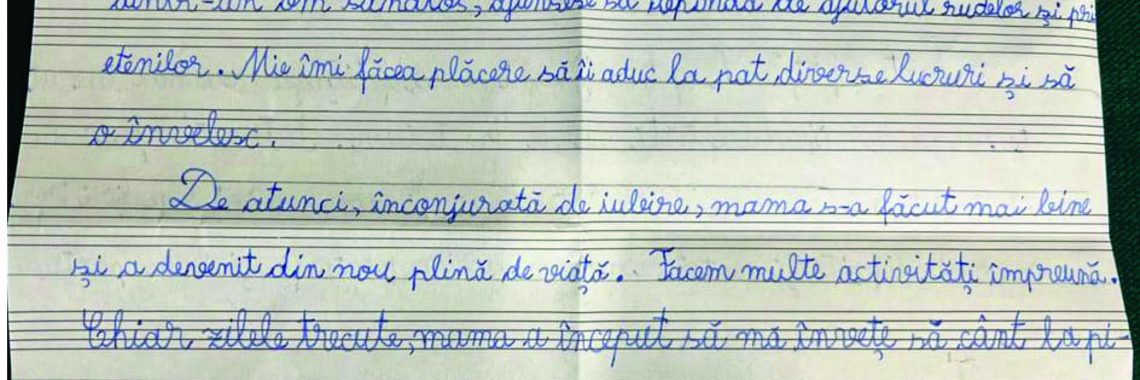 dintr-un om sănătos, ajunsese să depindă de ajutorul rudelor și pri
etenilor. Mie îmi făcea plăcere să îi aduc la pat diverse lucruri și să
o învelesc.
De atunci, înconjurată de iubire, mama s-a făcut mai bine
și a devenit din nou plină de viață. Facem multe activități împreună.
Chiar zilele trecute, mama a început să mă învețe să cânt la pi-